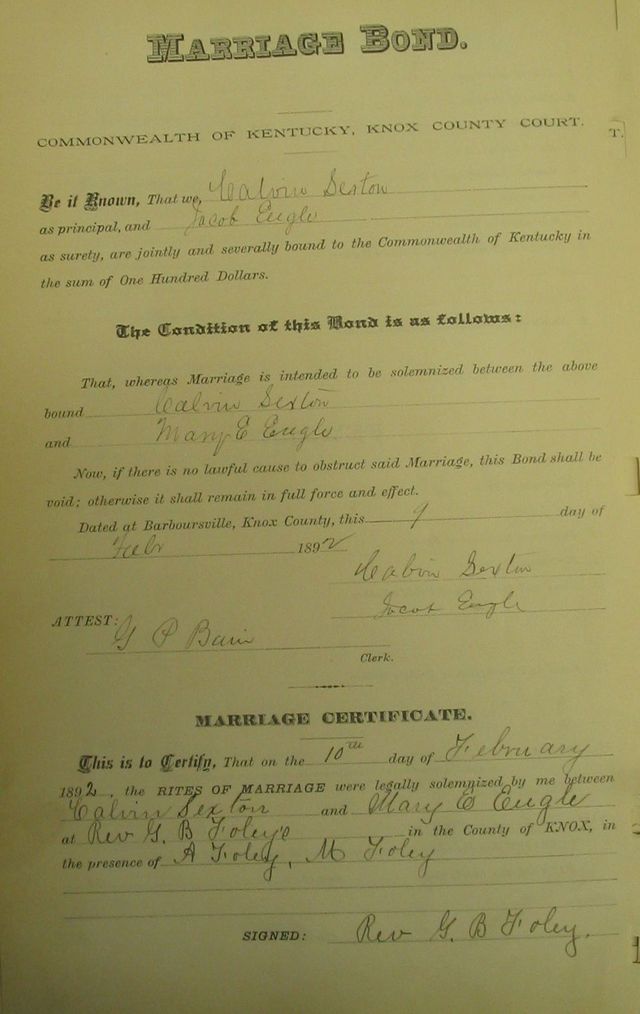 MARRIAGE BOND.
COMMONWEALTH OF KENTUCKY, KNOX COUNTY COURT.
T.
Be it Known, That we, Calvin Sexton
as principal, and Jacob Eugle
as surety, are jointly and severally bound to the Commonwealth of Kentucky in
the sum of One Hundred Dollars.
The Condition of this Bond is as follows:
That, whereas Marriage is intended to be solemnized between the above
bound Calvin Sexton
and Mary E Eugle
Now, if there is no lawful cause to obstruct said Marriage, this Bond shall be
void; otherwise it shall remain in full force and effect.
Dated at Barboursville, Knox County, this 9 day of
Febr 1892
Calvin Sexton
Jacob Eugle
ATTEST:
G P Bain
Clerk.
MARRIAGE CERTIFICATE.
This is to Certify, That on the 10th day of February
1892, the RITES OF MARRIAGE were legally solemnized by me between
Calvin Sexton and Mary E Eugle
at Rev G. B Foley's in the County of KNOX, in
the presence of A Foley, M Foley
SIGNED: Rev G. B Foley.